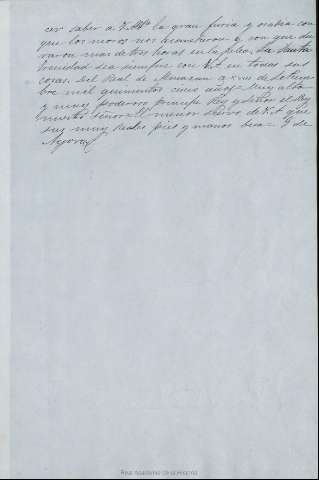 cer saber a V. Alt.ª la gran furia y osadia con
que los moros nos acometieron y con que du
raron mas de tres horas en la pelea. La Santa
Trinidad sea siempre con V.A. en todas sus
cosas. Del Real de Almazan a xviii de Setiem
bre mil quinientos cinco años = Muy alto
y muy poderoso principe Rey y Señor el Rey
nuestro señor = el menor siervo de V.A. que
sus muy Reales pies y manos besa = G de
Ayora
Real Academia de la Historia